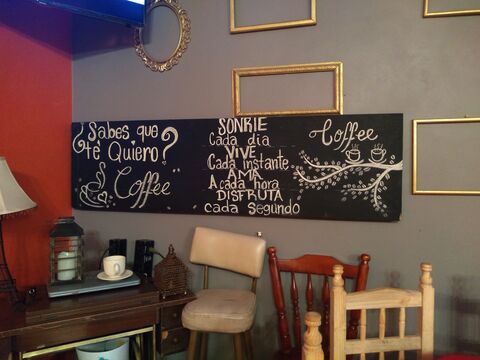 ¿Sabes que
te Quiero?
Coffee
SONRIE
Cada dia
VIVE
Cada instante
AMA
A cada hora
DISFRUTA
cada segundo
Coffee